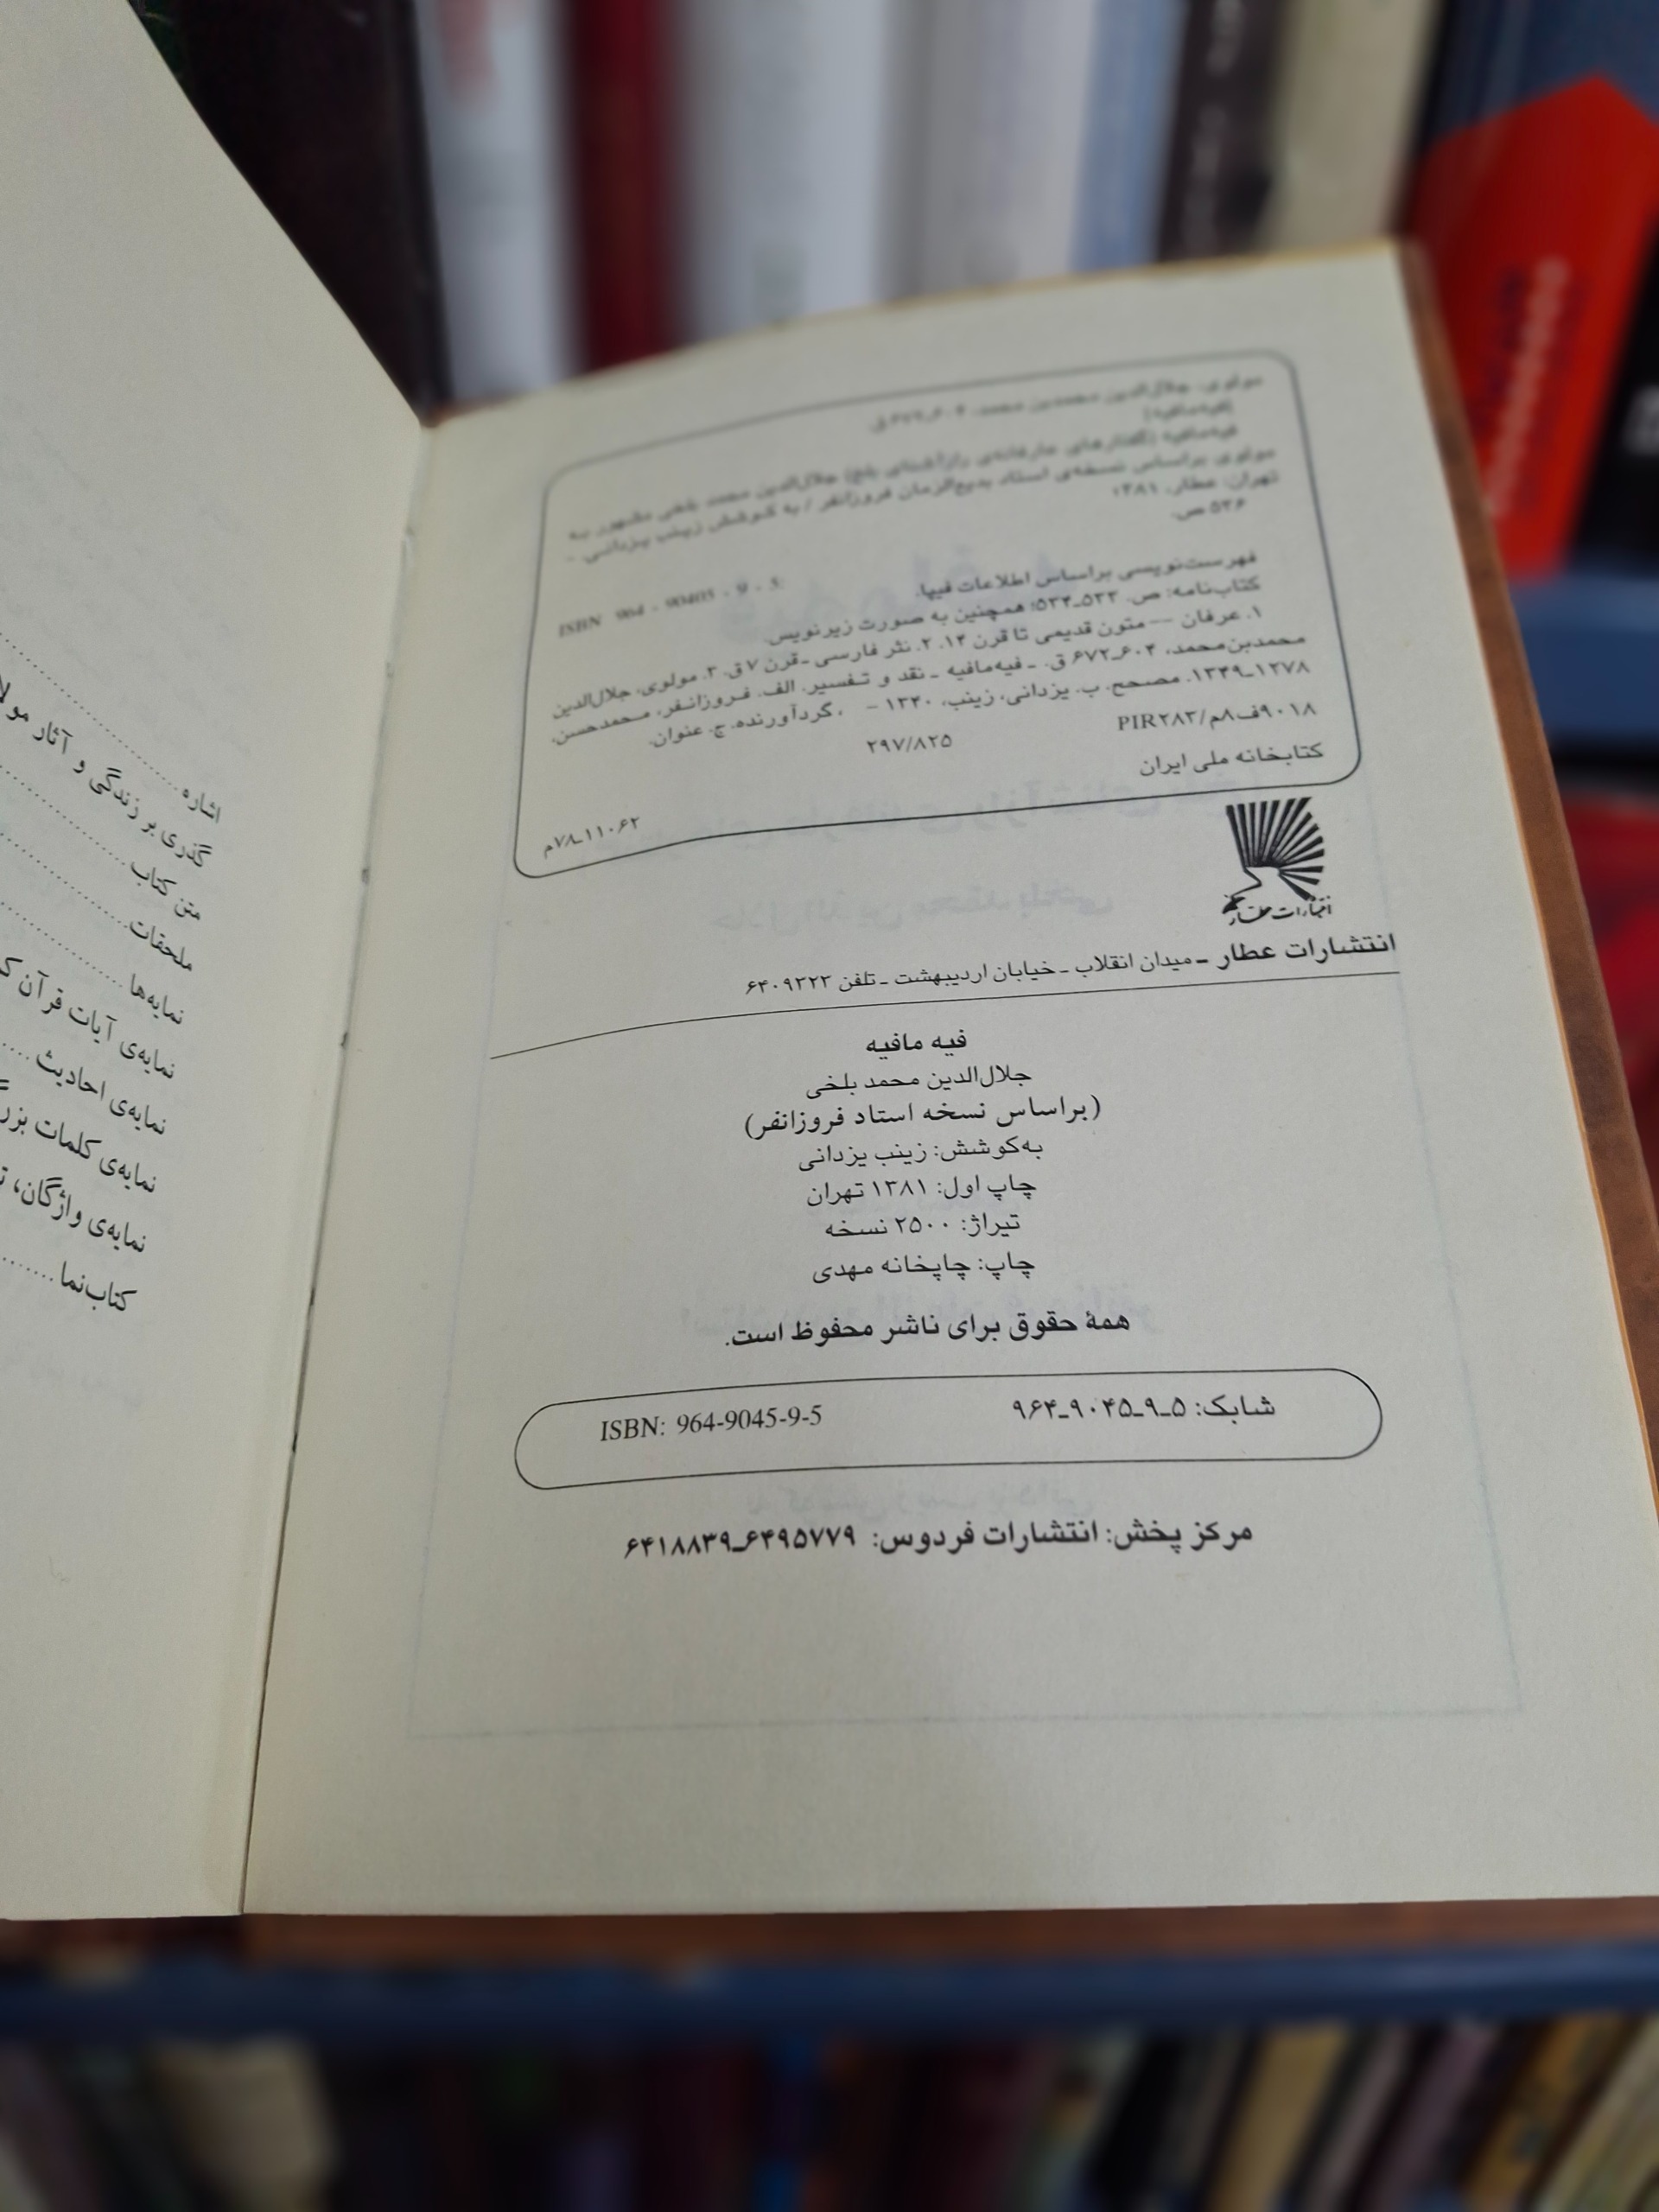 مولوی، جلال‌الدین محمدبن محمد، ۶۰۴ـ۶۷۲ ق.
[فیه‌مافیه]
فیه‌مافیه (گفتارهای عارفانه‌ی رازآشنای بلخ) جلال‌الدین محمد بلخی مشهور به
مولوی براساس نسخه‌ی استاد بدیع‌الزمان فروزانفر / به کوشش زینب یزدانی. -
تهران: عطار، ۱۳۸۱؛
۵۳۶ ص.
ISBN 964 - 90405 - 9 - 5:
فهرست‌نویسی براساس اطلاعات فیپا.
کتاب‌نامه: ص. ۵۳۳ـ۵۳۴؛ همچنین به صورت زیرنویس.
۱. عرفان -- متون قدیمی تا قرن ۱۴. ۲. نثر فارسی ـ قرن ۷ ق. ۳. مولوی، جلال‌الدین
محمدبن‌محمد، ۶۰۴ـ۶۷۲ ق. ـ فیه‌مافیه ـ نقد و تفسیر. الف. فروزانفر، محمدحسن،
۱۲۷۸ـ۱۳۴۹، مصحح. ب. یزدانی، زینب، ۱۳۴۰ - ، گردآورنده. ج. عنوان.
۹۰۱۸ف۸م/PIR۲۸۳ ۲۹۷/۸۲۵
کتابخانه ملی ایران ۱۱۰۶۲ـ۷۸م
انتشارات عطار
انتشارات عطار ـ میدان انقلاب ـ خیابان اردیبهشت ـ تلفن ۶۴۰۹۳۲۳
فیه مافیه
جلال‌الدین محمد بلخی
(براساس نسخه استاد فروزانفر)
به‌کوشش: زینب یزدانی
چاپ اول: ۱۳۸۱ تهران
تیراژ: ۲۵۰۰ نسخه
چاپ: چاپخانه مهدی
همهٔ حقوق برای ناشر محفوظ است.
شابک: ۵ـ۹ـ۹۰۴۵ـ۹۶۴ ISBN: 964-9045-9-5
مرکز پخش: انتشارات فردوس: ۶۴۹۵۷۷۹ـ۶۴۱۸۸۳۹
اشاره
گذری بر زندگی و آثار
متن کتاب
ملحقات
نمایه‌ها
نمایه‌ی آیات قرآن
نمایه‌ی احادیث
نمایه‌ی کلمات
نمایه‌ی واژگان،
کتاب‌نما